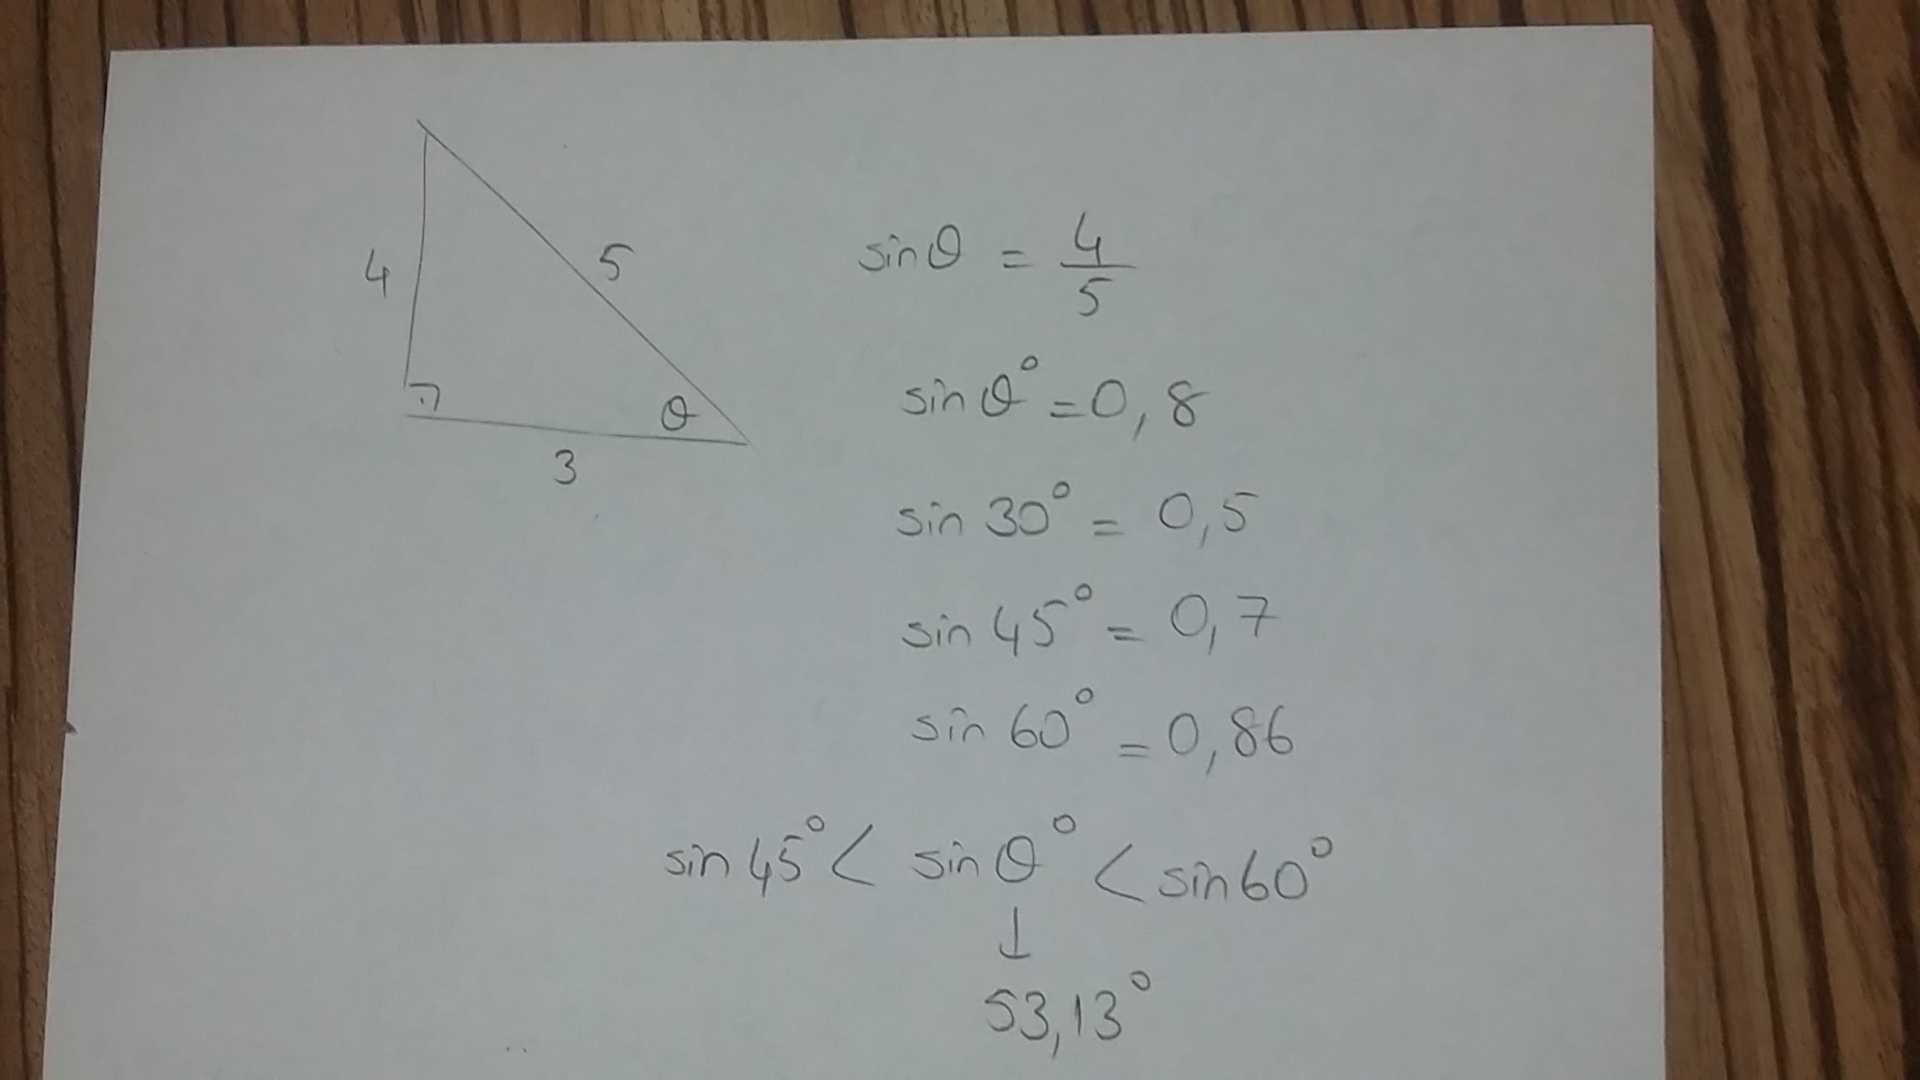 4
5
3
θ
sinθ = 4/5
sin θ° = 0,8
sin 30° = 0,5
sin 45° = 0,7
sin 60° = 0,86
sin 45° < sin θ° < sin 60°
↓
53,13°